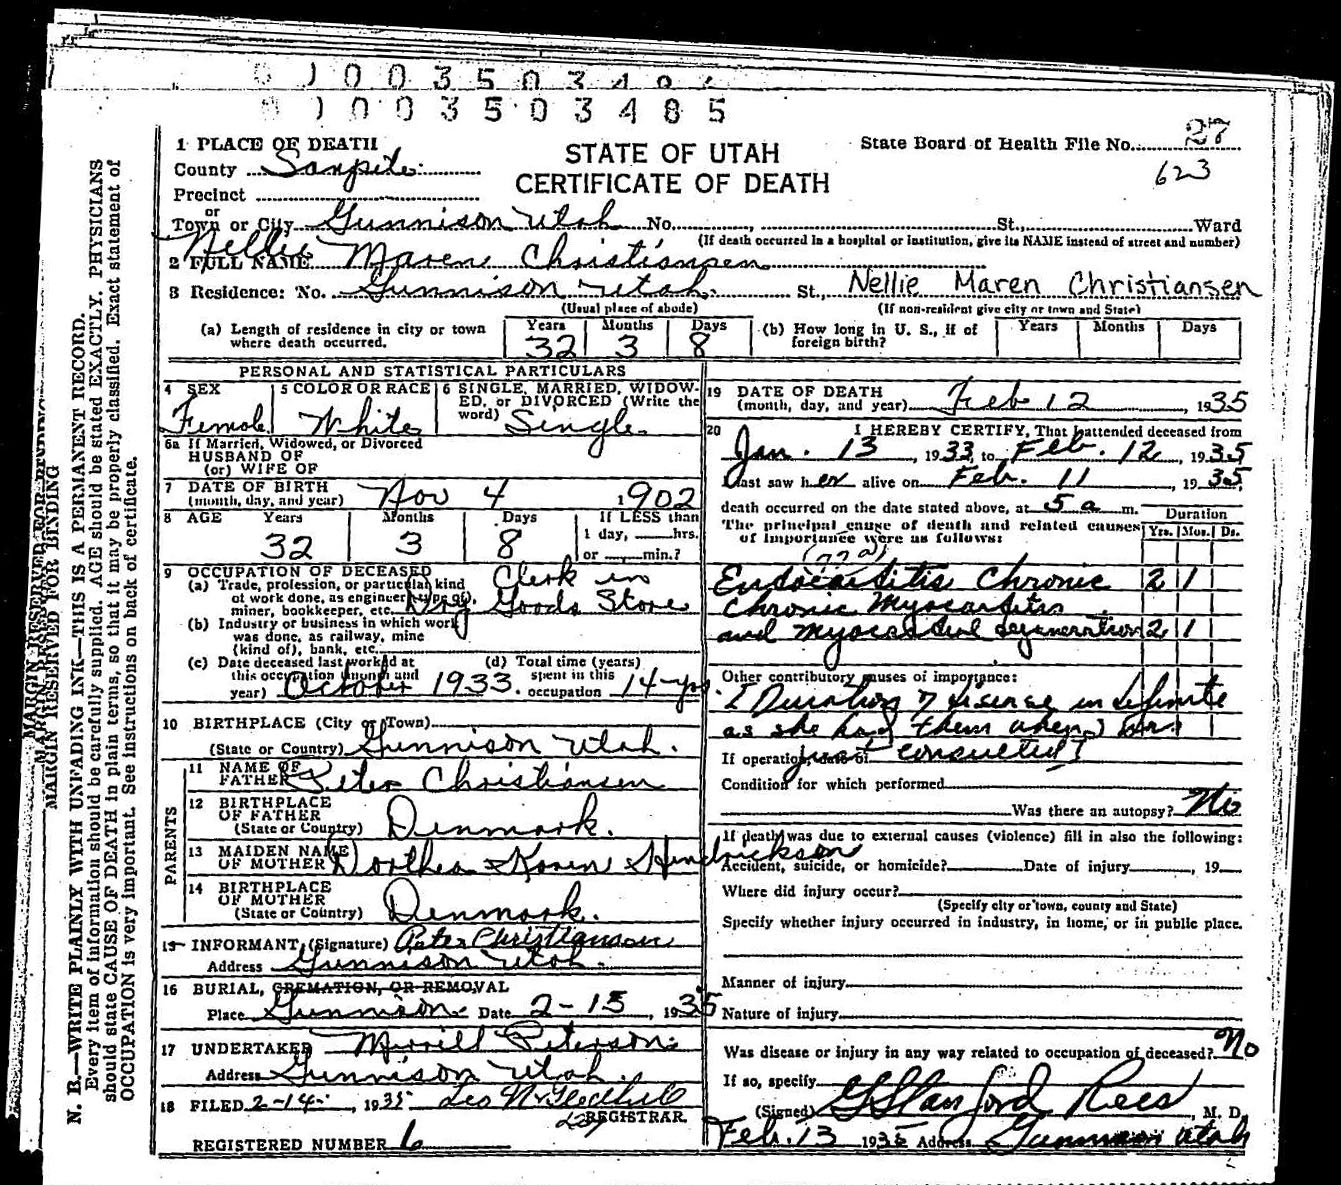 0 1 0 0 3 5 0 3 4 8 5
1 PLACE OF DEATH
STATE OF UTAH
CERTIFICATE OF DEATH
State Board of Health File No. 27
623
County Sanpete
Precinct
or
Town or City Gunnison Utah No. , St., Ward
(If death occurred in a hospital or institution, give its NAME instead of street and number)
2 FULL NAME Nellie Maren Christiansen
3 Residence: No. Gunnison Utah. St., Nellie Maren Christiansen
(Usual place of abode) (If non-resident give city or town and State)
(a) Length of residence in city or town where death occurred. Years 32 Months 3 Days 8
(b) How long in U. S., if of foreign birth? Years Months Days
PERSONAL AND STATISTICAL PARTICULARS
4 SEX Female
5 COLOR OR RACE White
6 SINGLE, MARRIED, WIDOWED, or DIVORCED (Write the word) Single
6a If Married, Widowed, or Divorced
HUSBAND OF
(or) WIFE OF
7 DATE OF BIRTH
(month, day, and year) Nov 4 1902
8 AGE Years 32 Months 3 Days 8
If LESS than
1 day, hrs.
or min.?
9 OCCUPATION OF DECEASED
(a) Trade, profession, or particular kind
of work done, as engineer, type of,
miner, bookkeeper, etc. Clerk in
Dry Goods Store
(b) Industry or business in which work
was done, as railway, mine
(kind of), bank, etc.
(c) Date deceased last worked at
this occupation (month and
year) October 1933.
(d) Total time (years)
spent in this
occupation 14-yrs.
10 BIRTHPLACE (City or Town)
(State or Country) Gunnison Utah.
PARENTS
11 NAME OF
FATHER Peter Christiansen
12 BIRTHPLACE
OF FATHER
(State or Country) Denmark.
13 MAIDEN NAME
OF MOTHER Dorthea Karen Hendrickson
14 BIRTHPLACE
OF MOTHER
(State or Country) Denmark.
15 INFORMANT, (Signature) Peter Christianson
Address Gunnison Utah.
16 BURIAL, CREMATION, OR REMOVAL
Place Gunnison Date 2-15, 1935
17 UNDERTAKER Merrill Peterson
Address Gunnison Utah.
18 FILED 2-14-, 1935
REGISTRAR.
REGISTERED NUMBER 6
19 DATE OF DEATH
(month, day, and year) Feb 12, 1935
20 I HEREBY CERTIFY, That I attended deceased from
Jan. 13, 1933, to Feb. 12, 1935
Last saw her alive on Feb. 11, 1935
death occurred on the date stated above, at 5 a m.
The principal cause of death and related causes
of importance were as follows:
Duration
Yrs. Mos. Ds.
Endocarditis Chronic 2 1
Chronic Myocarditis
and myocardial degeneration 2 1
Other contributory causes of importance:
Duration of disease indefinite
as she had them when I was
just consulted
If operation, date of
Condition for which performed
Was there an autopsy? No
If death was due to external causes (violence) fill in also the following:
Accident, suicide, or homicide? Date of injury , 19
Where did injury occur?
(Specify city or town, county and State)
Specify whether injury occurred in industry, in home, or in public place.
Manner of injury
Nature of injury
Was disease or injury in any way related to occupation of deceased? No
If so, specify
(Signed) G Stanford Rees, M. D.
Feb. 13 1935 Address Gunnison Utah
MARGIN RESERVED FOR BINDING
N. B.—WRITE PLAINLY WITH UNFADING INK—THIS IS A PERMANENT RECORD.
Every item of information should be carefully supplied. AGE should be stated EXACTLY. PHYSICIANS
should state CAUSE OF DEATH in plain terms, so that it may be properly classified. Exact statement of
OCCUPATION is very important. See instructions on back of certificate.